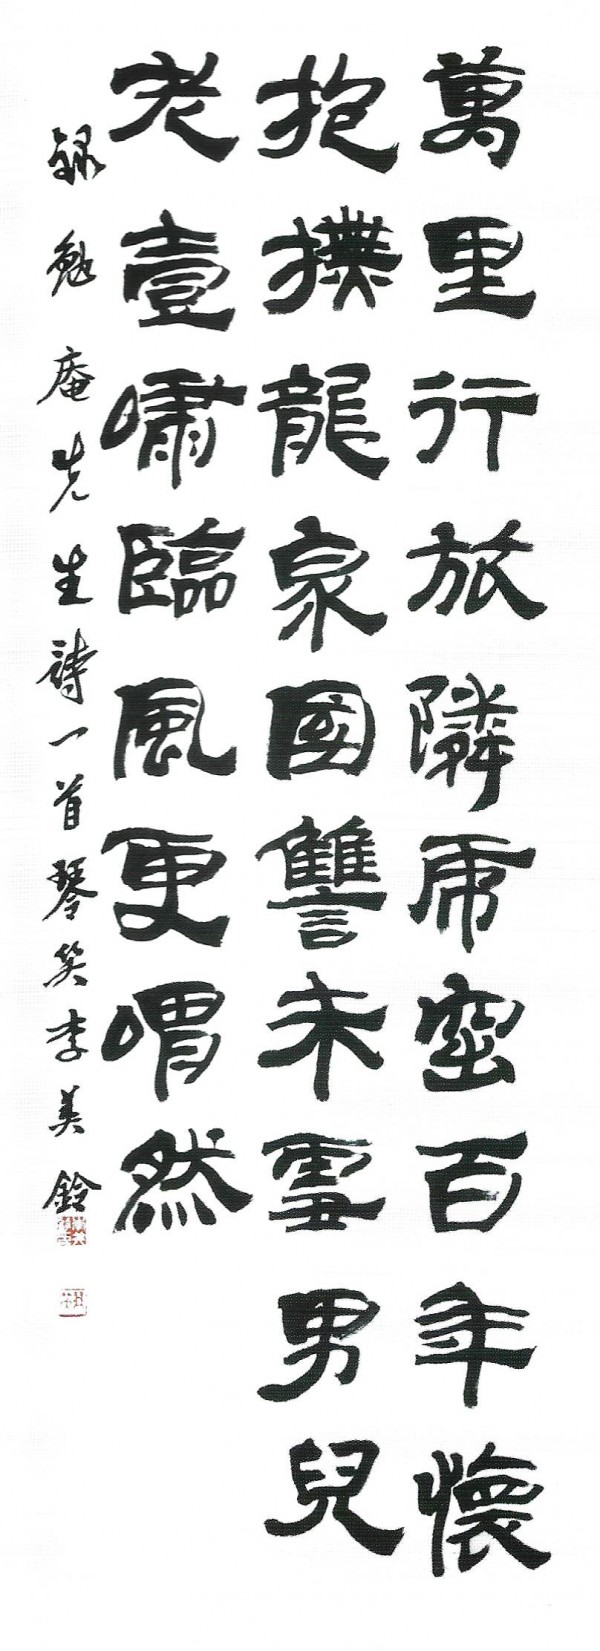 萬里行旅隣虎密百年懷
抱撲龍泉國讐未雪男兒
老壹嘯臨風更喟然
録勉庵先生詩一首琴笑李美鈴